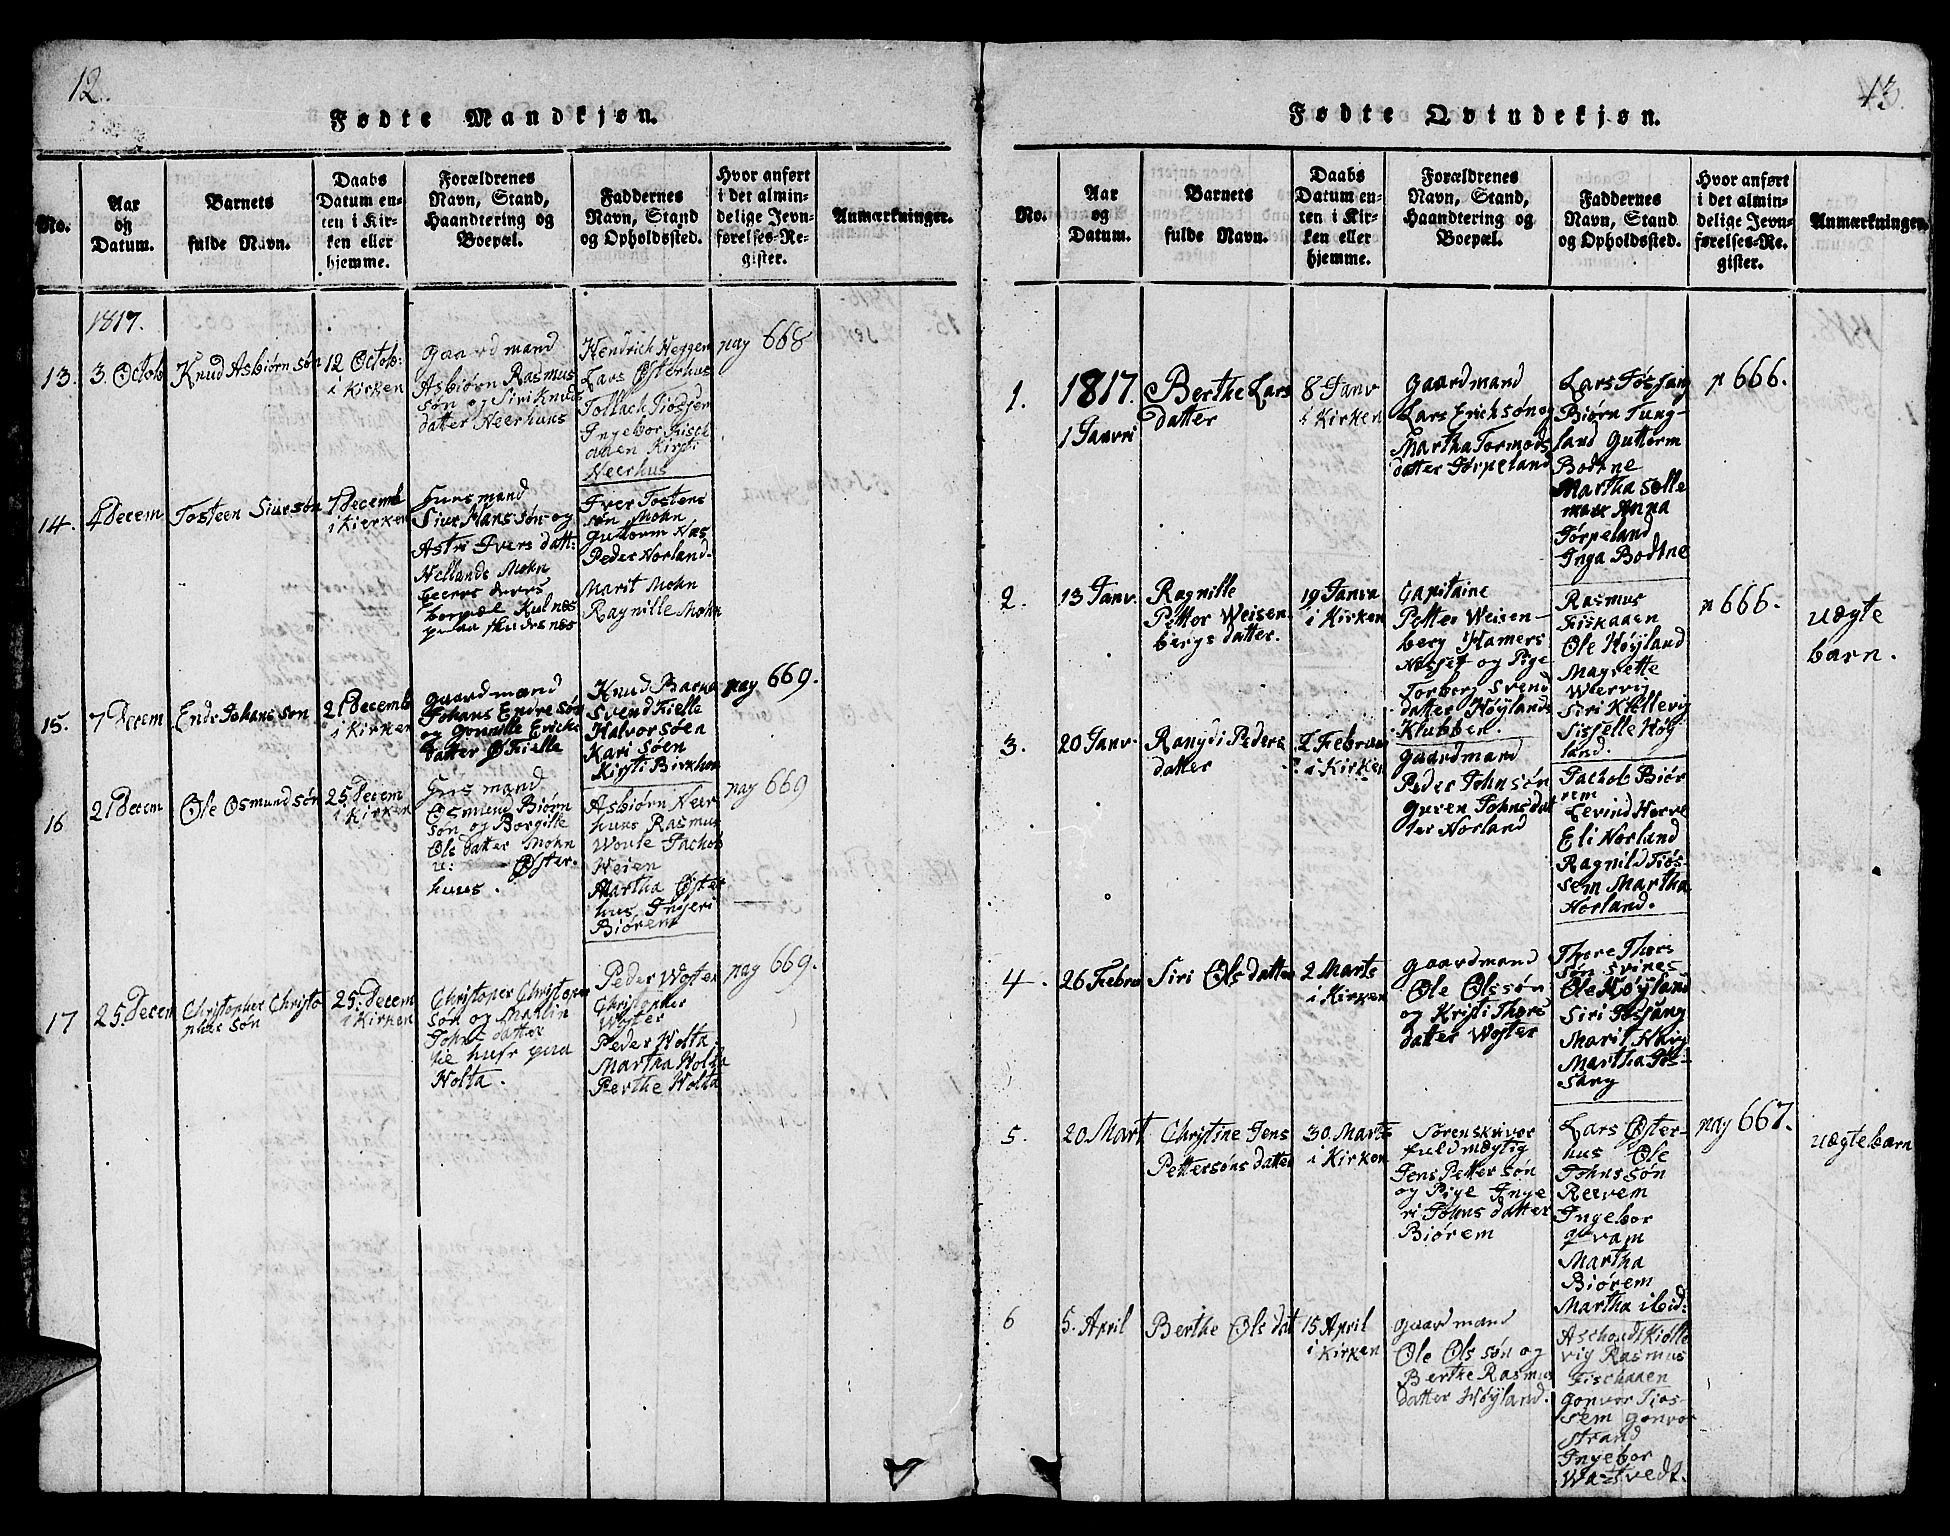 12.
Fødte Mandkjøn.
No.
Aar
og
Datum.
Barnets
fulde Navn.
Daabs
Datum en-
ten i Kir-
ken eller
hjemme.
Forældrenes
Navn, Stand,
Haandtering og
Boepæl.
Faddernes
Navn, Stand
og Opholdssted.
Hvor anført
i det almin-
delige Jevn-
førelses-Re-
gister.
Anmærkninger.
1817.
13.
3. Octob
Knud Asbiørnsøn
12 Octob:
i Kirken
Gaardmand
Asbiørn Rasmus
søn og Siri Knuds
datter Neerhuus
Hendrich Heggem
Lars Østerhus
Tollach Tiosjer
Ingebor Fisch
aaen Kirsti
Neerhus
pag 668
14.
4 Decem
Tosteen Siursøn
7 Decemb
i Kierken
Huusmand
Siur Hanssøn og
Astri Ivers datt:
Hellands Mohn
deres
boepæl Kulnæs
paa Skudesnæs
Iver Tostens
søn Mohn
Guttorm Næs
Peder Norland.
Marit Mohn
Ragnille Mohn
15.
7 Decem
Endr Johanssøn
21 Decemb
i Kirken
Gaardmand
Johans Endresøn
og Gonnille Ericks
datter Øfielle
Knud Barka
Svend Fielle
Halvor Søen
Kari Søen
Kirsti Birkhus
pag 669.
16
21 Decem
Ole Osmundsøn
25 Decem
i Kirken
Huusmand
Osmund Biørn
søn og Borgille
Ols datter Mohn
u: Øster-
huus.
Asbiørn Neer
huus Rasmus
Woule Jachob
Weien
Martha Øster
hus Ingeri
Biørem
pag 669
17
25. Decem
Christopher Christo
phersøn
25. Decem
i Kirken
Christoper Christoper
søn og Marlin
Johne datter
paa
Holta.
Peder Woster
Christopher
Woster
Peder Holta
Martha Holta
Berthe Holta
pag 669.
13.
Fødte Qvindekjøn.
No.
Aar
og
Datum.
Barnets
fulde Navn.
Daabs
Datum en-
ten i Kir-
ken eller
hjemme.
Forældrenes
Navn, Stand,
Haandtering og
Boepæl.
Faddernes
Navn, Stand
og Opholdssted.
Hvor anført
i det almin-
delige Jevn-
førelses-Re-
gister.
Anmærkninger.
1.
1817.
1 Janvri
Berthe Lars
datter
8 Janv
i Kirken
Gaardmand
Lars Erichsøn og
Martha Tormods
datter Jørpeland
Lars Fossang
Biørn Tung-
land Guttorm
Bodtne
Martha Selle
Anna
Jørpeland
Inga Bodtne
p 666.
2.
13 Janv.
Ragnille
Petter Weisen
bergs datter.
19 Janva
i Kirken
Capitaine
Petter Weisen-
berg Hamers
Næsset og Pige
Torberg Svend
datter Høylands
Klubben.
Rasmus
Fiskaaen
Ole Høyland
Magrette
Wiervig
Siri Kiellevig
Sisselle Høy
land.
p 666.
uægte
barn.
3.
20 Janv.
Rangdi Peders
datter
2 Februar
i Kirken
Gaardmand
Peder Johnsøn
Guren Johnsdat
ter Norland
Jachob Biør
rem
Eevind Herve
Eli Norland
Ragnild Tiøs-
sem Martha
Norland.
4.
26 Februa
Siri Ols datter
2 Marts
i Kirken
Gaardmand
Ole Olssøn
og Kristi Thors
datter Woster
Thore Thors
søn Svines
Ole Høyland
Siri Fossang
Marit Skeig
Martha Fos-
sang
5.
20. Mart
Christine Jens
Pettersøns datter
30. Marts
i Kirken
Sørenskriver
fuldmægtig
Jens Pettersøn
og Pige Inge
ri Johns datter
Biørem
Lars Øster-
hus Ole
Johnssøn
Reevem
Ingebor
qvam
Martha
Biørem
Martha ibid:
pag 667.
uægte barn
6
5. April
Berthe Ols dat
15 April
i Kirken
Gaardmand
Ole Olssøn og
Berthe Rasmus
datter Høyland.
Aschoudt Kiølle
vig Rasmus
Fischaaen
Gonvor Tios-
sem Gonvor
Strand
Ingebor
Watsvedt.